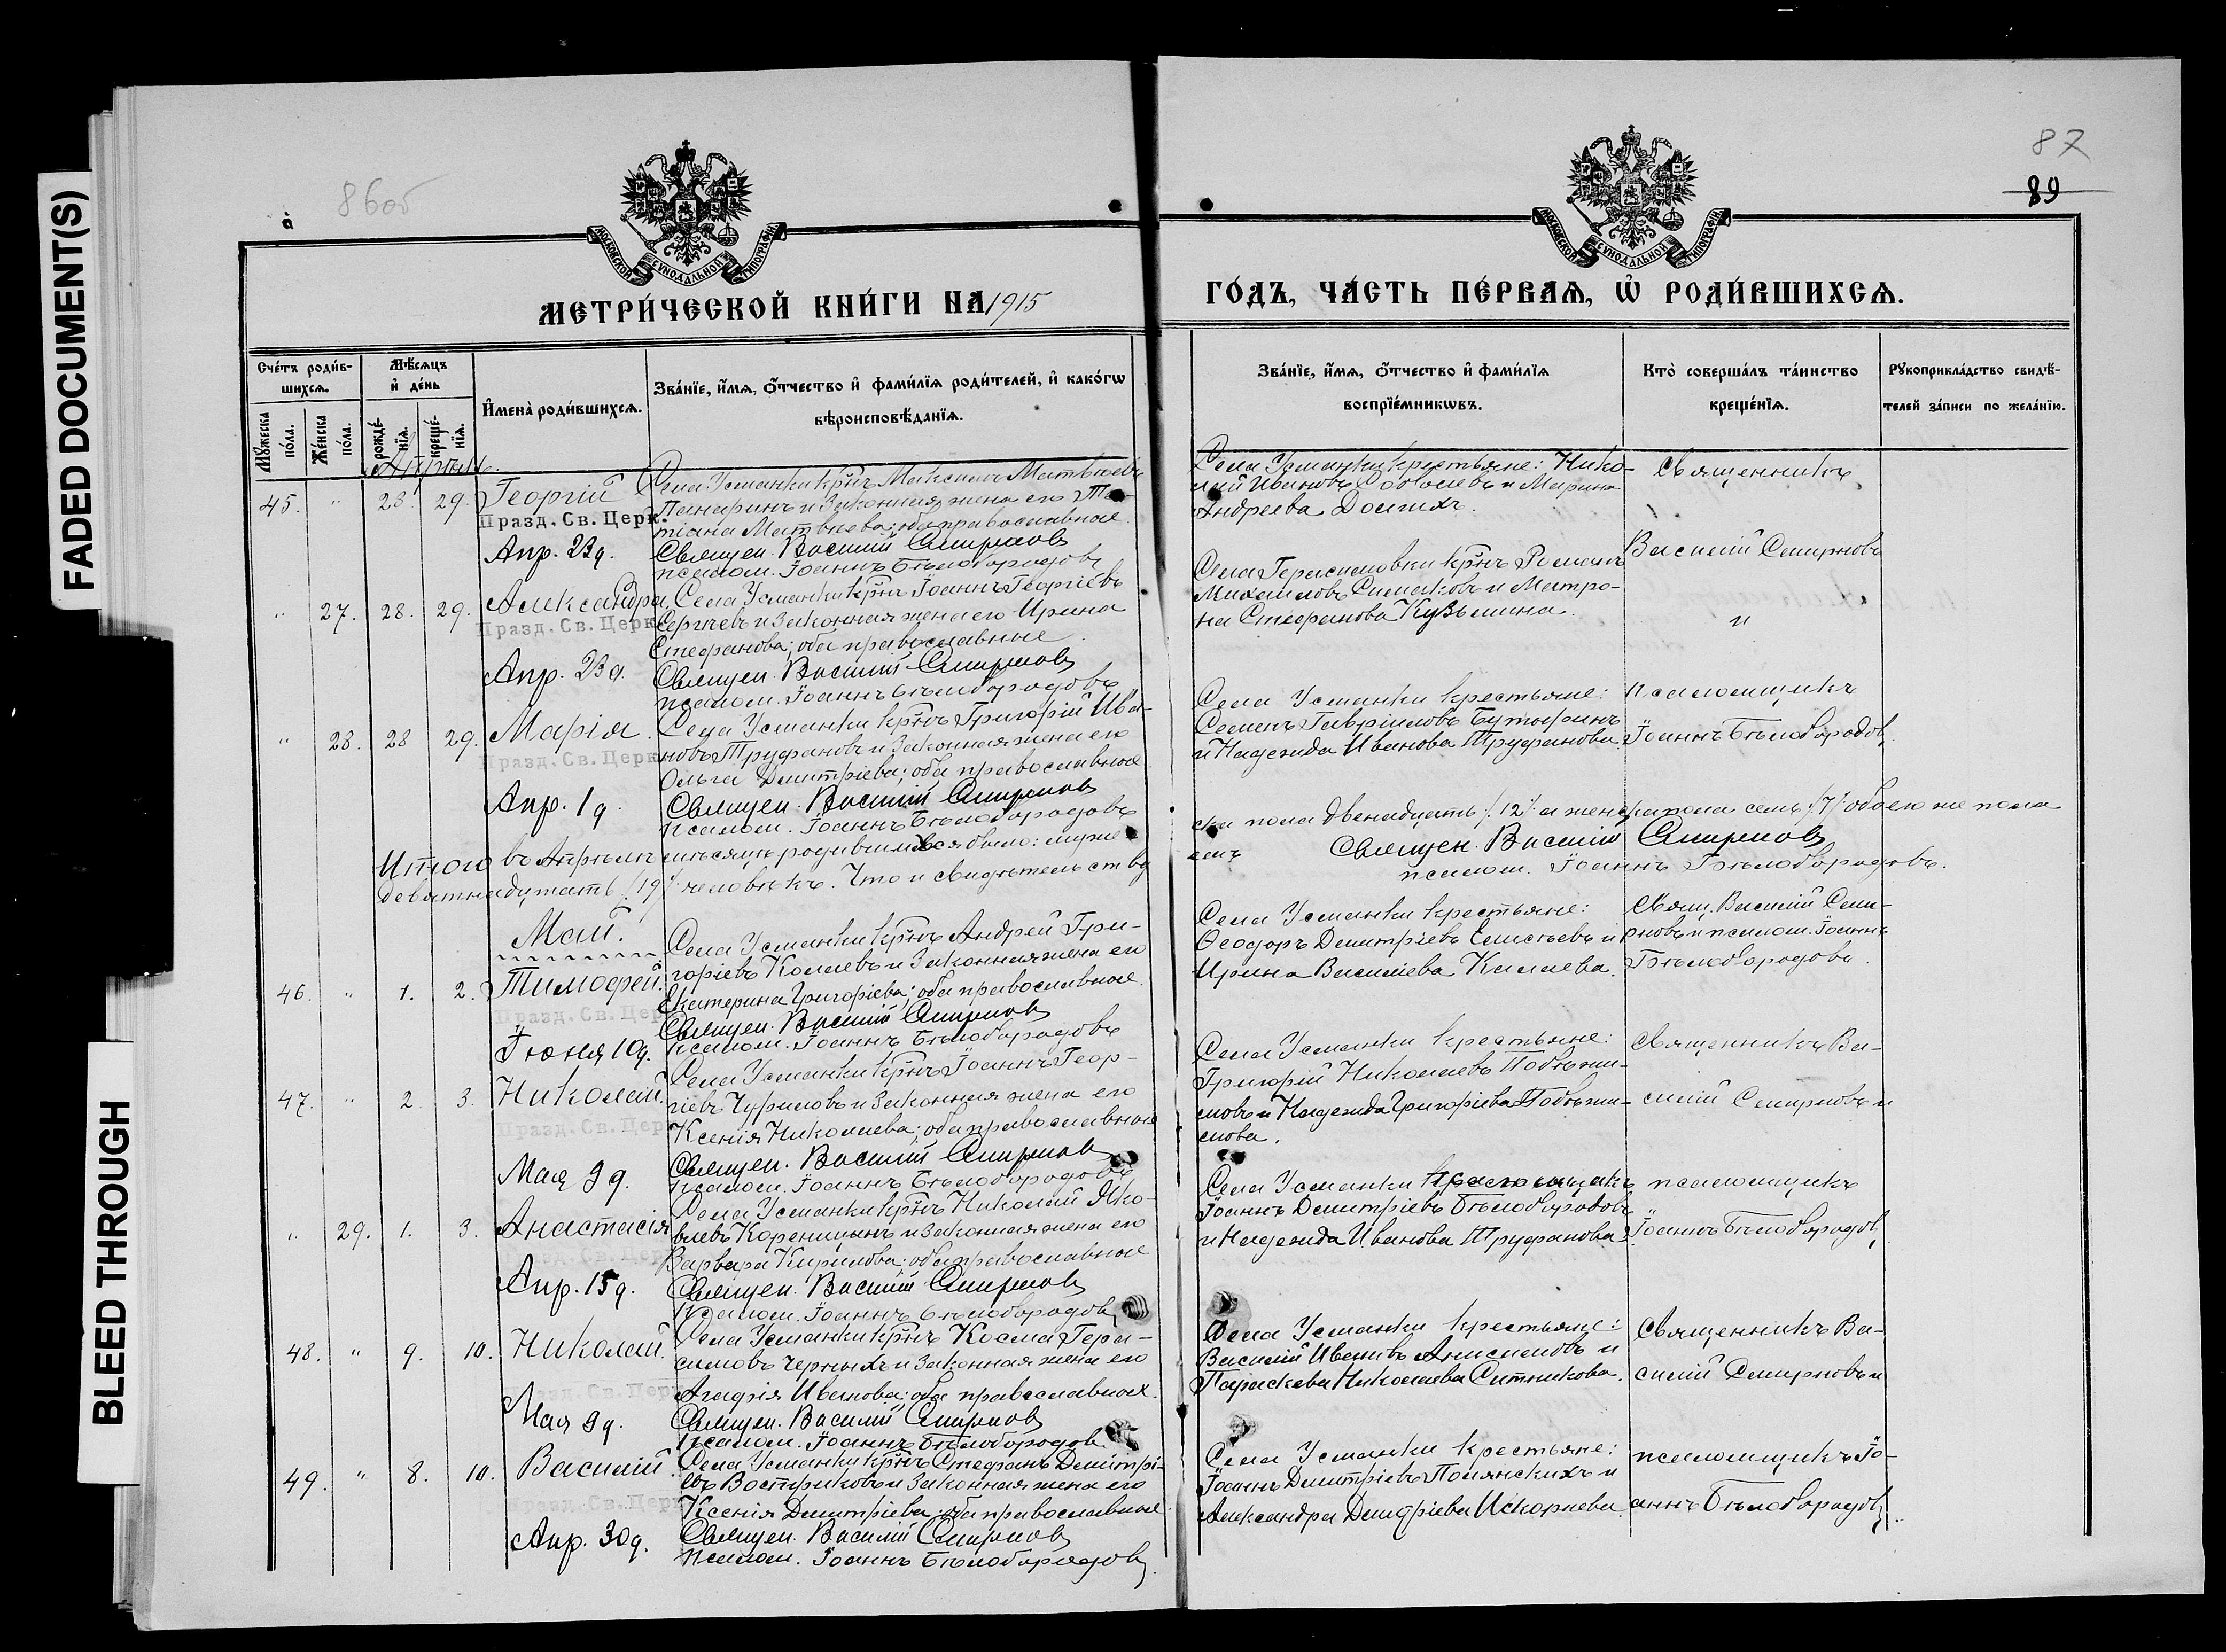 FADED DOCUMENT(S)
BLEED THROUGH
86об
87
89
МОСКОВСКОЙ СѴНОДАЛЬНОЙ ТИПОГРАФІИ
МОСКОВСКОЙ СѴНОДАЛЬНОЙ ТИПОГРАФІИ
МЕТРИ́ЧЕСКОЙ КНИ́ГИ НА 1915
ГО́ДЪ, ЧА́СТЬ ПЕ́РВАѦ, Ѡ҆ РОДИ́ВШИХСѦ.
Сче́тъ роди́в-
шихсѧ.
Мꙋ́жеска по́ла.
Же́нска по́ла.
Мѣ́сѧцъ
и҆ де́нь
рожде́-
нїѧ.
креще́-
нїѧ.
И҆мена̀ роди́вшихсѧ.
Зва́нїе, и҆́мѧ, ѻ҆́тчество и҆ фами́лїѧ роди́телей, и҆ како́гѡ
вѣроисповѣ́данїѧ.
Зва́нїе, и҆́мѧ, ѻ҆́тчество и҆ фами́лїѧ
воспрїе́мникѡвъ.
Кто̀ соверша́лъ та́инство
креще́нїѧ.
Рꙋкоприкла́дство свидѣ́-
телей за́писи по жела́нїю.
Апрѣль.
45. " 28. 29. Георгій
Празд. Св. Церк.
Апр. 23 д.
Села Усманки крнъ Максимъ Матвѣевъ
Панаринъ и законная жена его Та-
тіана Матвѣева; оба православные.
Священ. Василій Смирновъ
псалом. Іоаннъ Бѣлобородовъ
Села Усманки крестьяне: Нико-
лай Ивановъ и Марина
Андреева Долгихъ.
Священникъ
Василій Смирновъ
" 27. 28. 29. Александра.
Празд. Св. Церк.
Апр. 23 д.
Села Усманки крнъ Іоаннъ Георгіевъ
Сергѣевъ и законная жена его Ирина
Стефанова; оба православные.
Священ. Василій Смирновъ
псалом. Іоаннъ Бѣлобородовъ
Села Герасимовки крнъ Романъ
Михаиловъ Симаковъ и Матро-
на Стефанова Кузьмина.
и
" 28. 28 29. Марія.
Празд. Св. Церк.
Апр. 1 д.
Села Усманки крнъ Григорій Ива-
новъ Труфановъ и законная жена его
Ольга Димитріева; оба православные
Священ. Василій Смирновъ
псалом. Іоаннъ Бѣлобородовъ
Села Усманки крестьяне:
Семенъ Гавріиловъ Бутыринъ
и Надежда Иванова Труфанова.
псаломщикъ
Іоаннъ Бѣлобородовъ
Итого въ Апрѣлѣ мѣсяцѣ родившихся было: муже-
ска пола двенадцать /12/ а женска пола семь /7/ обоего же пола
девятнадцать /19/ человѣкъ. Что и свидѣтельству
емъ Священ. Василій Смирновъ
псалом. Іоаннъ Бѣлобородовъ.
Май.
46. " 1. 2. Тимофей.
Празд. Св. Церк.
Іюня 10 д.
Села Усманки крнъ Андрей Гри-
горіевъ Комаевъ и законная жена его
Екатерина Григоріева; оба православные.
Священ. Василій Смирновъ
псалом. Іоаннъ Бѣлобородовъ
Села Усманки крестьяне:
Ѳеодоръ Димитріевъ Елисѣевъ и
Ирина Василіева Камаева.
Свящ. Василій Сми-
рновъ и псалом. Іоаннъ
Бѣлобородовъ.
47. " 2. 3. Николай.
Празд. Св. Церк.
Мая 9 д.
Села Усманки крнъ Іоаннъ Геор-
гіевъ Чуриловъ и законная жена его
Ксенія Николаева; оба православные
Священ. Василій Смирновъ
псалом. Іоаннъ Бѣлобородовъ
Села Усманки крестьяне:
Григорій Николаевъ Побѣжи-
мовъ и Надежда Григоріева Побѣжи-
мова.
Священникъ Ва-
силій Смирновъ и
" 29. 1. 3. Анастасія
Празд. Св. Церк.
Апр. 15 д.
Села Усманки крнъ Николай Яко-
влевъ Кореницынъ и законная жена его
Варвара Кирилова; оба православные
Священ. Василій Смирновъ
псалом. Іоаннъ Бѣлобородовъ
Села Усманки псаломщикъ
Іоаннъ Димитріевъ Бѣлобородовъ
и Надежда Иванова Труфанова.
псаломщикъ
Іоаннъ Бѣлобородовъ
48. " 9. 10. Николай.
Празд. Св. Церк.
Мая 9 д.
Села Усманки крнъ Косма Гера-
симовъ Черныхъ и законная жена его
Агафія Иванова; оба православные.
Священ. Василій Смирновъ
псалом. Іоаннъ Бѣлобородовъ
Села Усманки крестьяне:
Василій Ивановъ Анисимовъ и
Параскева Николаева Ситникова.
Священникъ Ва-
силій Смирновъ и
49. " 8. 10. Василій.
Празд. Св. Церк.
Апр. 30 д.
Села Усманки крнъ Стефанъ Димитрі-
евъ Востриковъ и законная жена его
Ксенія Димитріева; оба православные.
Священ. Василій Смирновъ
псалом. Іоаннъ Бѣлобородовъ
Села Усманки крестьяне:
Іоаннъ Димитріевъ Полянскихъ и
Александра Димитріева Искорнева.
псаломщикъ Іо-
аннъ Бѣлобородовъ.